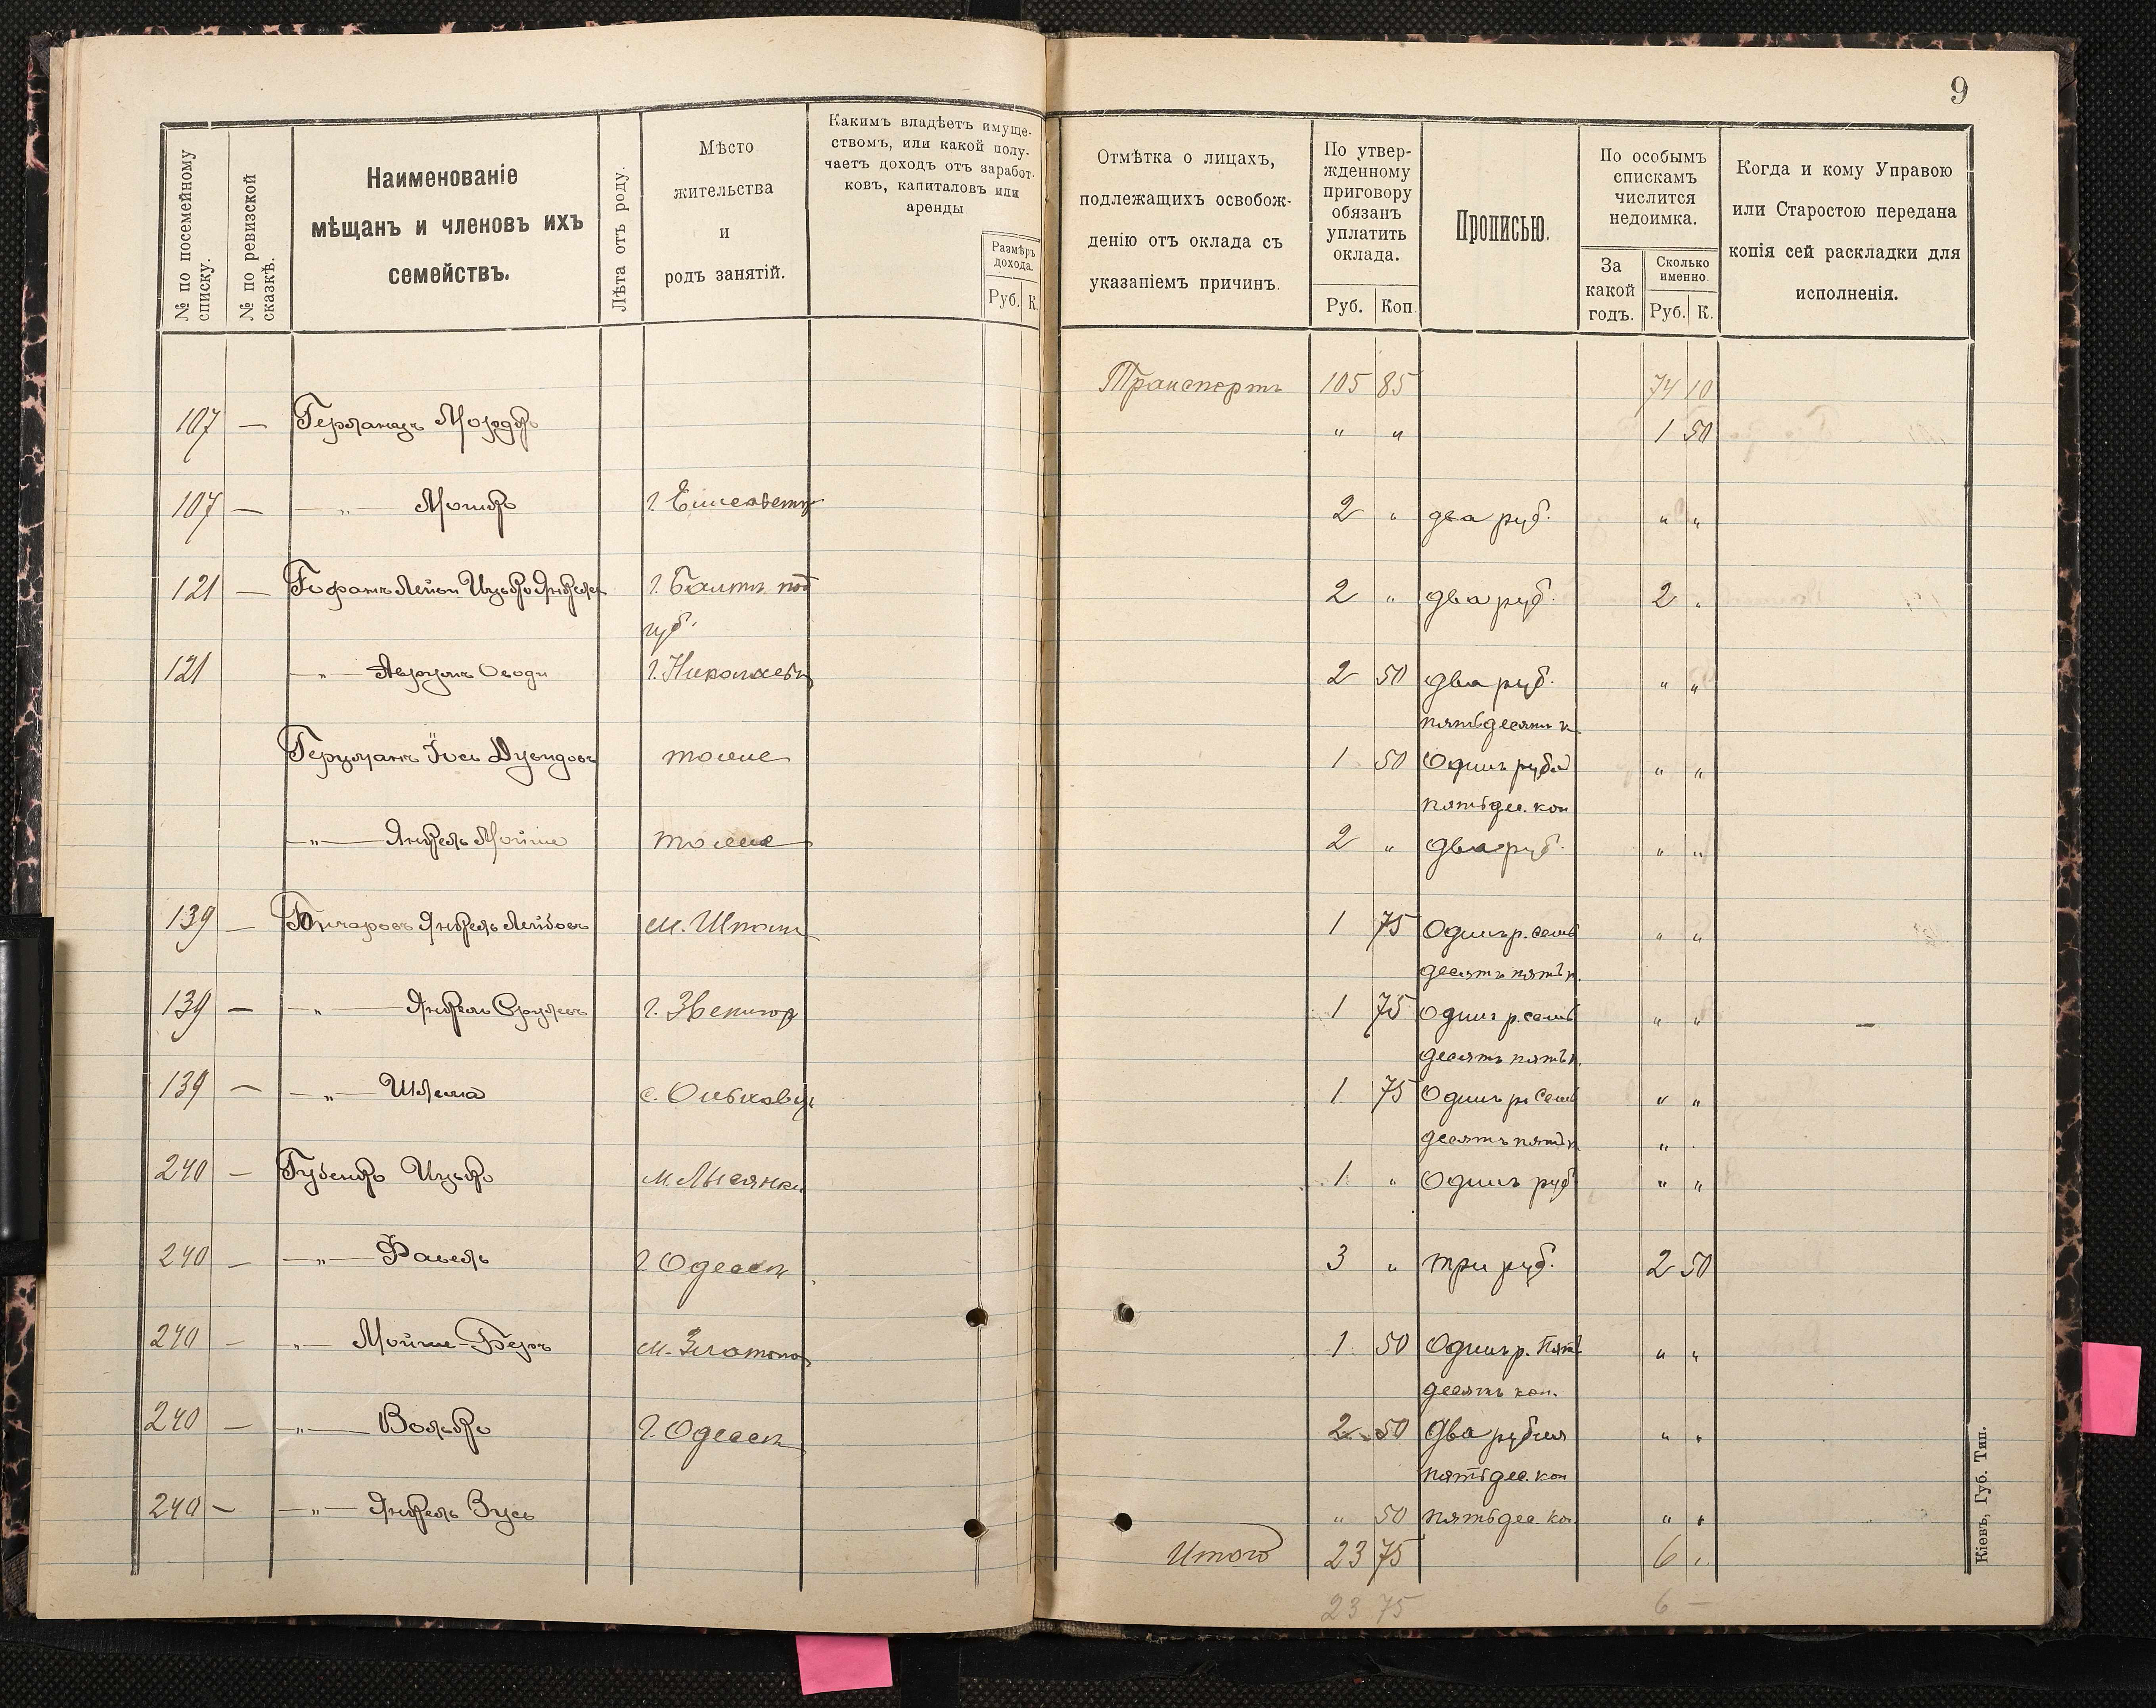 9
№ по посемейному списку.
№ по ревизской сказкѣ.
Наименованіе
мѣщанъ и членовъ ихъ
семействъ.
Лѣта отъ роду.
Мѣсто
жительства
и
родъ занятій.
Какимъ владѣетъ имуще-
ствомъ, или какой полу-
чаетъ доходъ отъ заработ-
ковъ, капиталовъ или
аренды
Размѣръ
дохода.
Руб. К.
Отмѣтка о лицахъ,
подлежащихъ освобож-
денію отъ оклада съ
указаніемъ причинъ.
По утвер-
жденному
приговору
обязанъ
уплатить
оклада.
Руб. Коп.
Прописью.
По особымъ
спискамъ
числится
недоимка.
За
какой
годъ.
Сколько
именно.
Руб. К.
Когда и кому Управою
или Старостою передана
копія сей раскладки для
исполненія.
Транспортъ 105 85 74 10
107 — " " 1 50
107 — — " — Мошко г. Елисаветгр 2 " два руб. " "
121 — г. Балтъ под 2 " два руб. 2 "
губ.
121 — " — г. Николаевъ 2 50 два руб. " "
пятьдесятъ к.
Герцманъ Іось Дувидовъ тоже 1 50 Одинъ рубль " "
пятьдес. коп
— " — Янкель Мойше тоже 2 " два руб. " "
139 — Гончаровъ Янкель Лейбовъ м. Шпола 1 75 Одинъ р. семь " "
десятъ пять к.
139 — — " — Янкель Срулевъ г. Звенигор 1 75 Одинъ р. семь " " —
десятъ пять к.
139 — — " — Шлема 1 75 Одинъ р. семь " "
десятъ пять к. "
240 — Губенко Ицько м. Лысянки 1 " Одинъ руб " "
240 — — " — г. Одесса 3 " три руб. 2 50
240 — — " — Мойше-Беръ м. Златопол 1 50 Одинъ р. пять " "
десятъ коп.
240 — — " — Волько г. Одесса 2 50 два рубля " "
пятьдес. коп
240 — — " — Янкель Зусь " 50 пятьдес. ко. " "
Итого 23 75 6 "
23 75 6 —
Кіевъ, Губ. Тип.